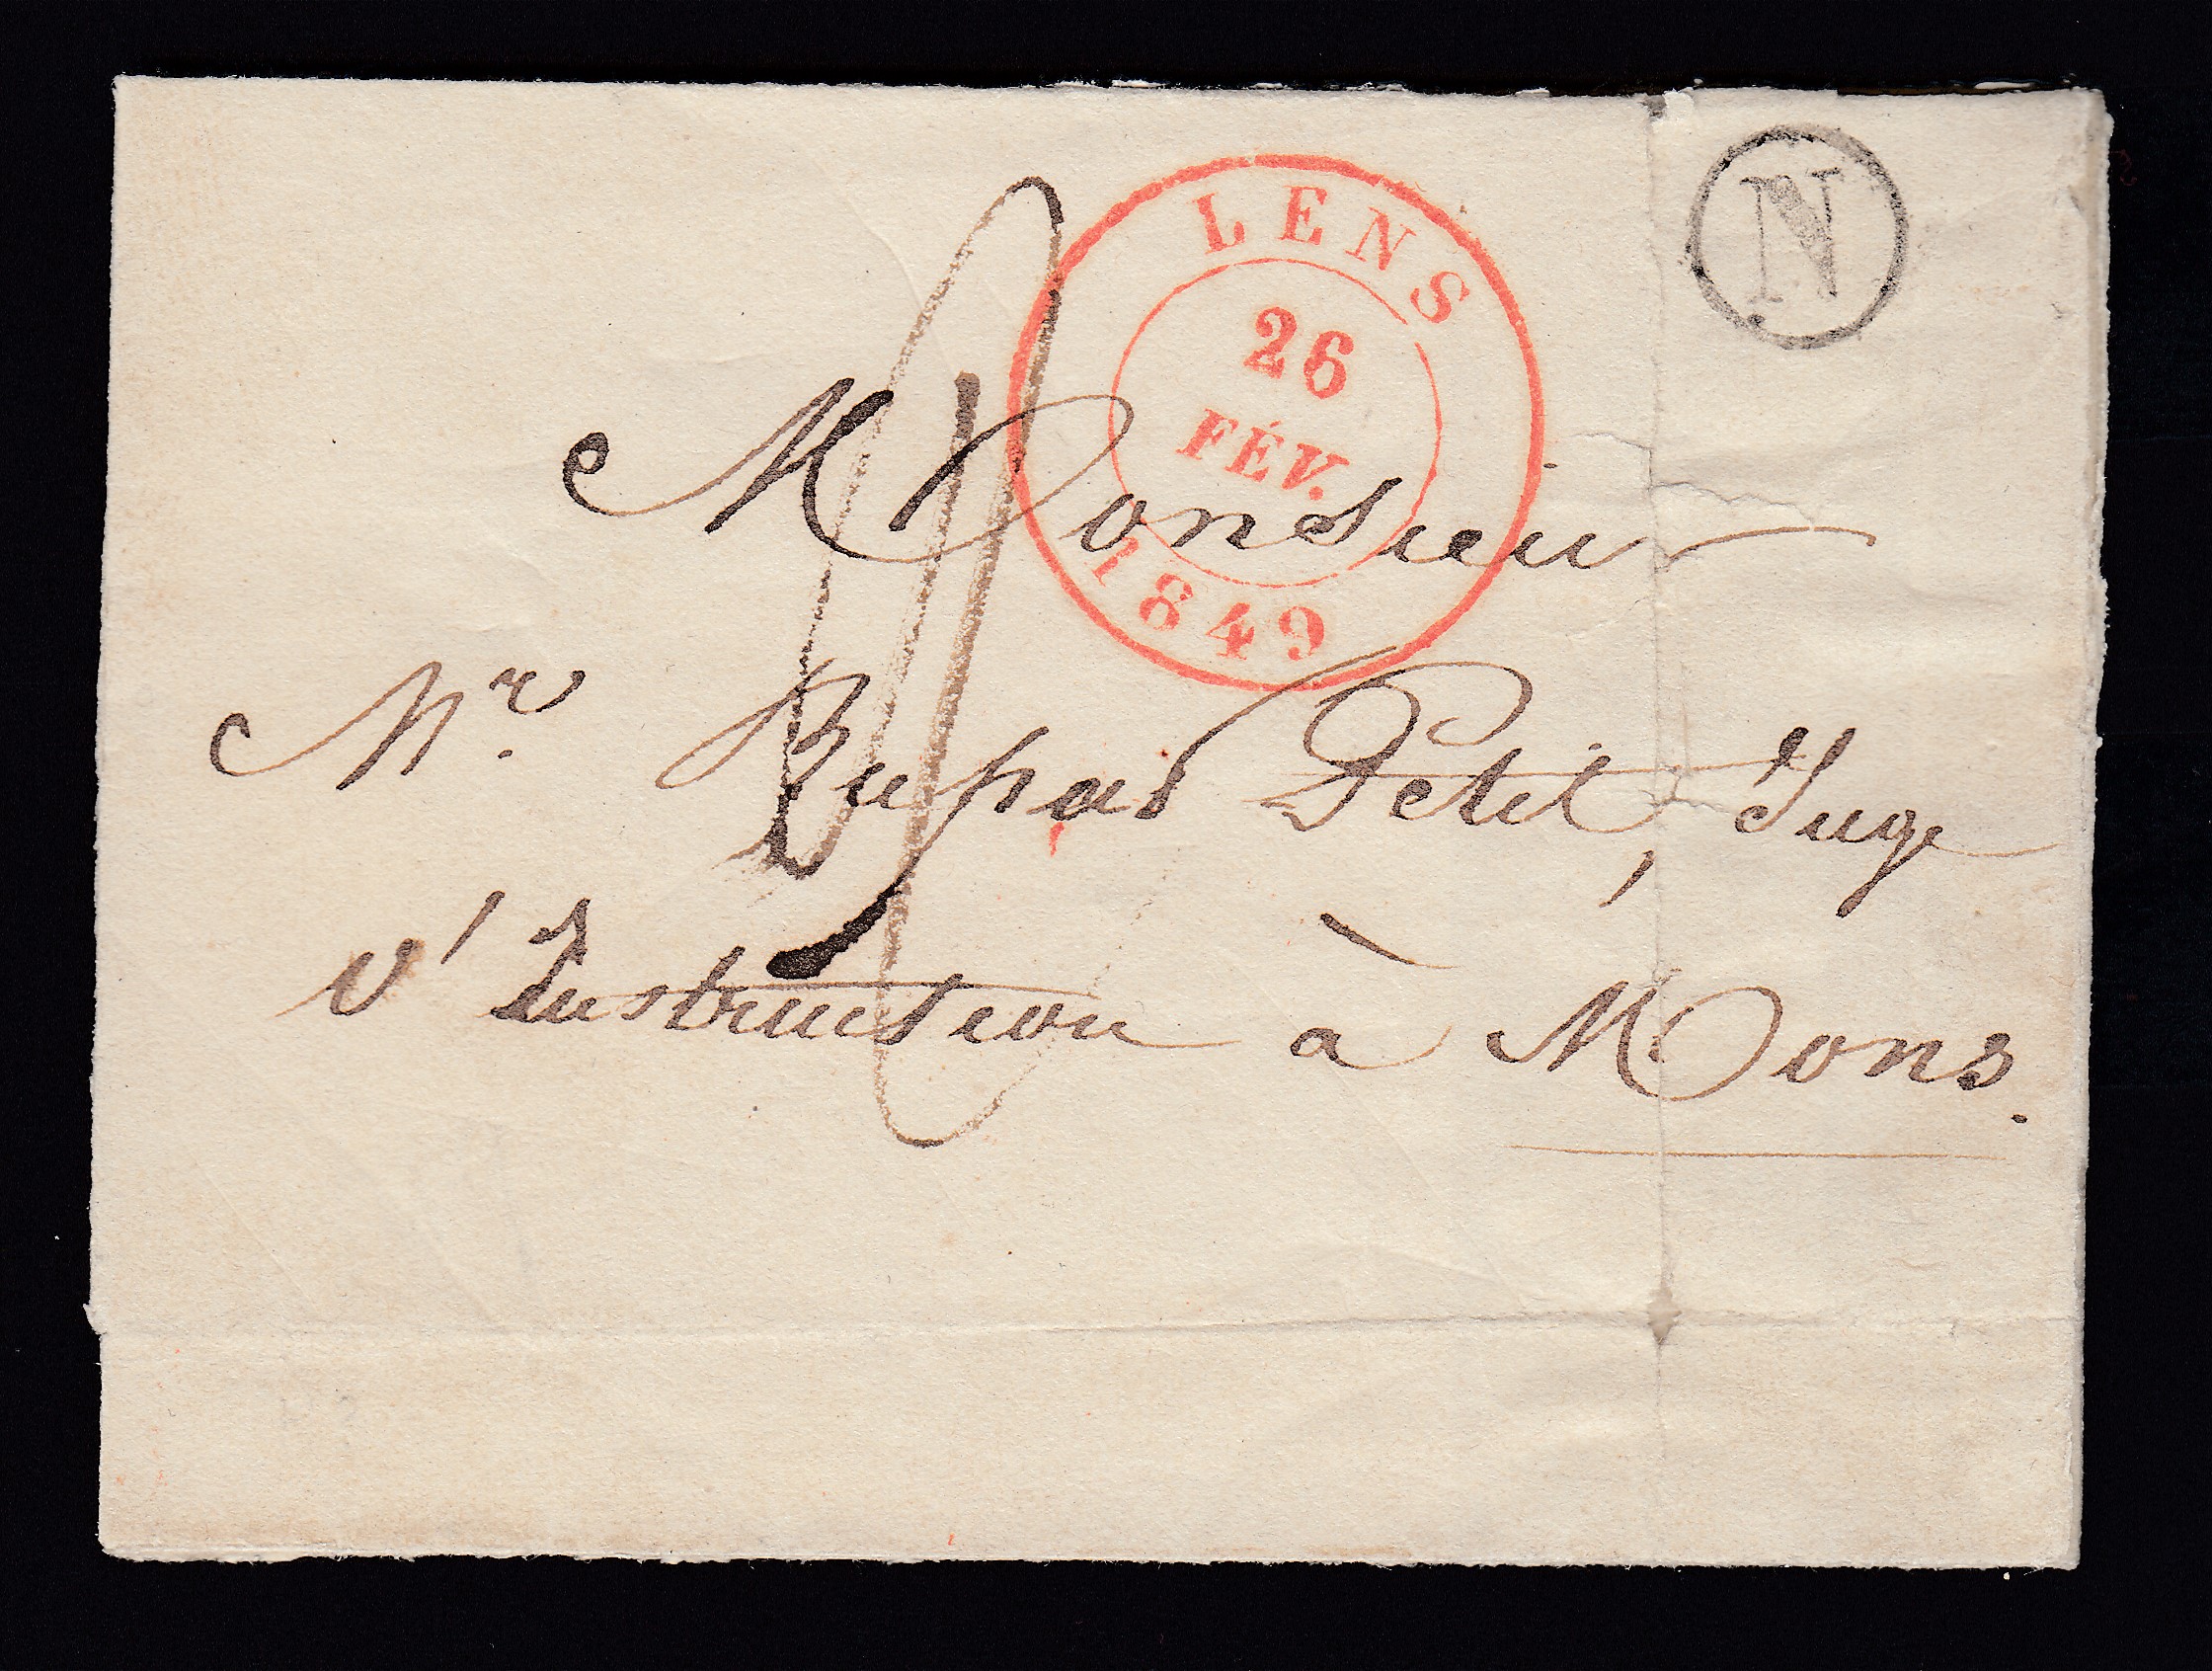 LENS
26
FÉV.
1849
N
Monsieur
Mr. Petit, Juge
d'Instruction à Mons.